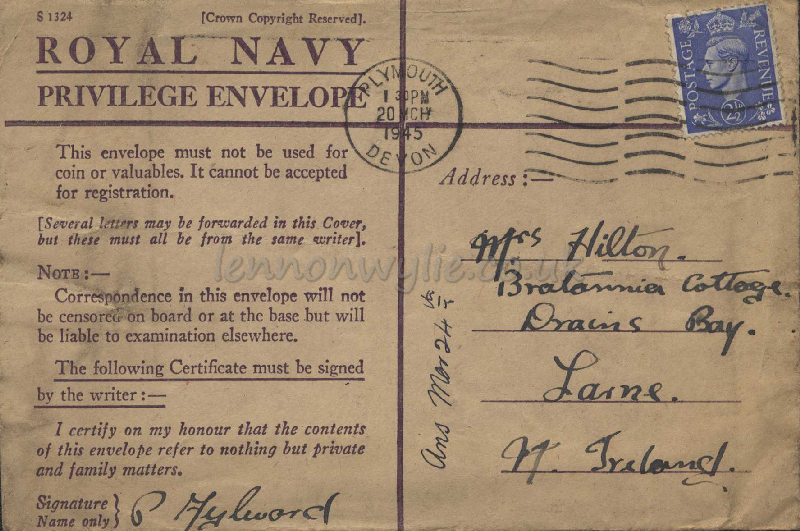 S 1324 [Crown Copyright Reserved].
ROYAL NAVY
PRIVILEGE ENVELOPE
This envelope must not be used for
coin or valuables. It cannot be accepted
for registration.
[Several letters may be forwarded in this Cover,
but these must all be from the same writer].
NOTE:—
Correspondence in this envelope will not
be censored on board or at the base but will
be liable to examination elsewhere.
The following Certificate must be signed
by the writer:—
I certify on my honour that the contents
of this envelope refer to nothing but private
and family matters.
Signature
Name only
P Aylward
PLYMOUTH
1 30PM
20 MCH
1945
DEVON
POSTAGE
REVENUE
2½
Address:—
Mrs Hilton.
Bratannia Cottage.
Drains Bay.
Larne.
N. Ireland.
Ans Mar 24th
lennonwylie.co.uk